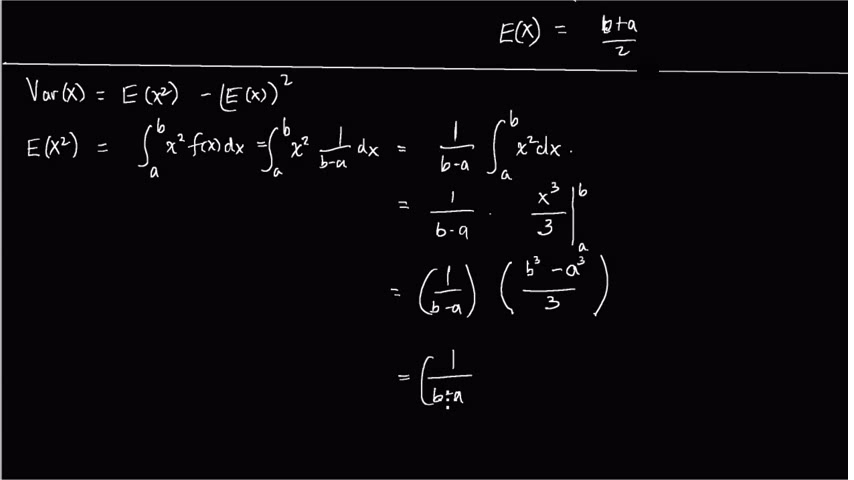 E(X) = b+a/2
Var(x) = E(x²) - (E(x))²
E(X²) = ∫ₐᵇ x² f(x) dx = ∫ₐᵇ x² 1/(b-a) dx = 1/(b-a) ∫ₐᵇ x² dx.
= 1/(b-a) · x³/3 |ₐᵇ
= (1/(b-a)) ((b³ - a³)/3)
= (1/(b-a)